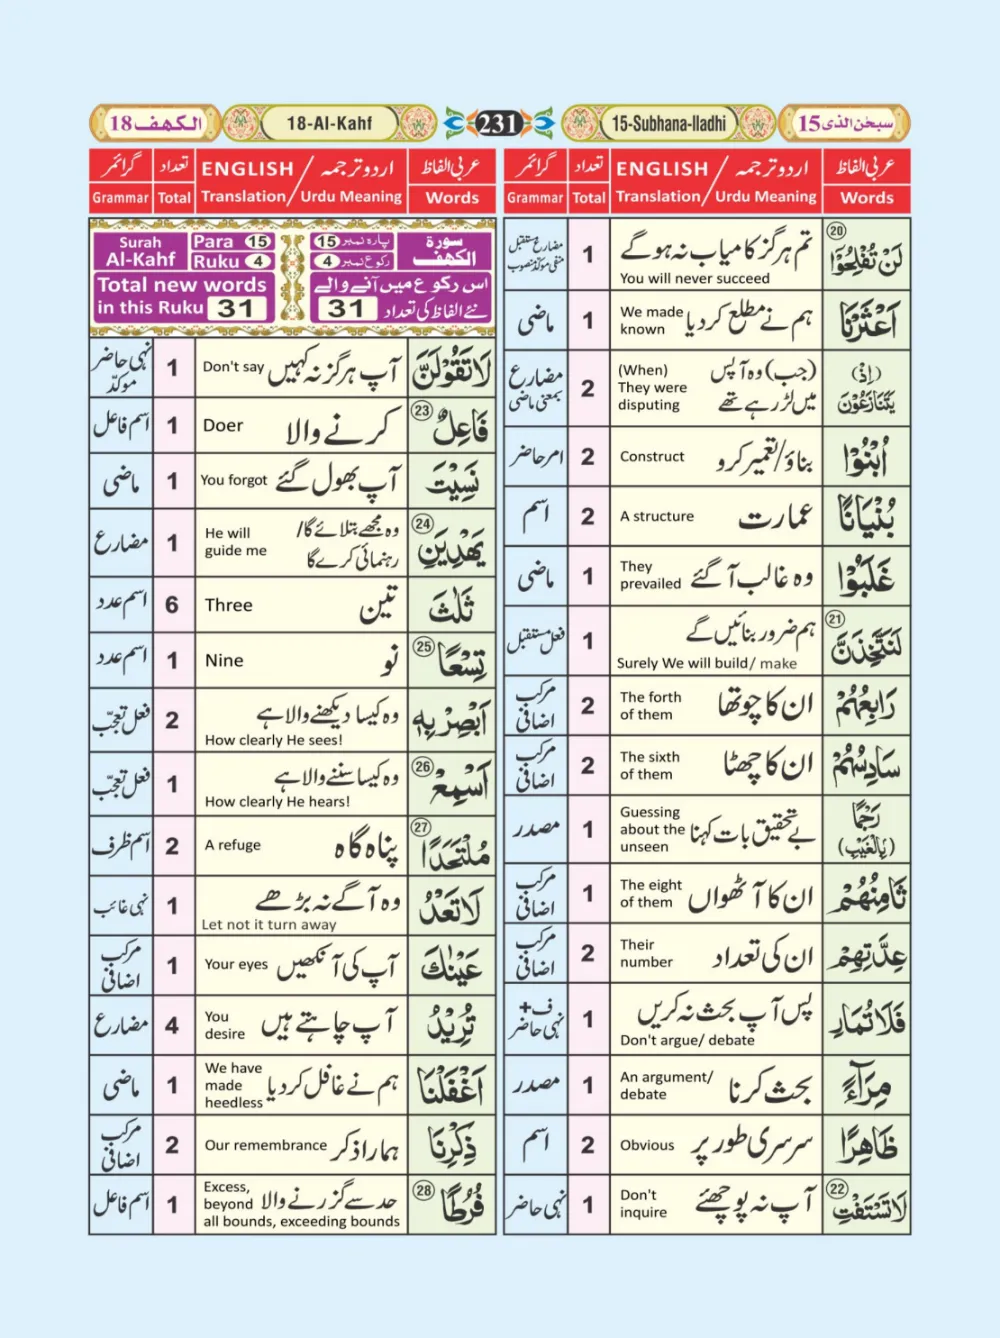 الكهف 18
18-Al-Kahf
231
15-Subhana-lladhi
سبحٰن الذی 15
عربی الفاظ اردو ترجمہ / ENGLISH تعداد گرائمر
Words Urdu Meaning / Translation Total Grammar
لَنْ تُفْلِحُوْٓا ⑳ تم ہرگز کامیاب نہ ہوگے 1 مضارع مستقبل
You will never succeed منفی موکد منصوب
اَعْثَرْنَا ہم نے مطلع کردیا We made known 1 ماضی
(اِذْ) (جب) وہ آپس (When) مضارع
يَتَنَازَعُوْنَ میں لڑ رہے تھے They were disputing 2 بمعنی ماضی
اُبْنُوْا بناؤ/تعمیر کرو Construct 2 امر حاضر
بُنْيَانًا عمارت A structure 2 اسم
غَلَبُوْا وہ غالب آگئے They prevailed 1 ماضی
لَنَتَّخِذَنَّ ㉑ ہم ضرور بنائیں گے 1 فعل مستقبل
Surely We will build/ make
رَابِعُهُمْ ان کا چوتھا The forth of them 2 مرکب اضافی
سَادِسُهُمْ ان کا چھٹا The sixth of them 2 مرکب اضافی
رَجْمًا (بِالْغَيْبِ) بے تحقیق بات کہنا Guessing about the unseen 1 مصدر
ثَامِنُهُمْ ان کا آٹھواں The eight of them 1 مرکب اضافی
عِدَّتِهِمْ ان کی تعداد Their number 2 مرکب اضافی
فَلَا تُمَارِ پس آپ بحث نہ کریں 1 ف+ نہی حاضر
Don't argue/ debate
مِرَآءً بحث کرنا An argument/ debate 1 مصدر
ظَاهِرًا سرسری طور پر Obvious 2 اسم
لَا تَسْتَفْتِ ㉒ آپ نہ پوچھئے Don't inquire 1 نہی حاضر
عربی الفاظ اردو ترجمہ / ENGLISH تعداد گرائمر
Words Urdu Meaning / Translation Total Grammar
Surah Al-Kahf Para 15 پارہ نمبر 15 سورة الكهف
Ruku 4 رکوع نمبر 4
Total new words اس رکوع میں آنے والے
in this Ruku 31 نئے الفاظ کی تعداد 31
لَا تَقُوْلَنَّ آپ ہرگز نہ کہیں Don't say 1 نہی حاضر موکد
فَاعِلٌ ㉓ کرنے والا Doer 1 اسم فاعل
نَسِيْتَ آپ بھول گئے You forgot 1 ماضی
يَهْدِيَنِ ㉔ وہ مجھے بتلائے گا/ He will
رہنمائی کرے گا guide me 1 مضارع
ثَلٰثَ تین Three 6 اسم عدد
تِسْعًا ㉕ نو Nine 1 اسم عدد
اَبْصِرْ بِهٖ وہ کیسا دیکھنے والا ہے 2 فعل تعجّب
How clearly He sees!
اَسْمِعْ ㉖ وہ کیسا سننے والا ہے 1 فعل تعجّب
How clearly He hears!
مُلْتَحَدًا ㉗ پناہ گاہ A refuge 2 اسم ظرف
لَا تَعْدُ وہ آگے نہ بڑھے 1 نہی غائب
Let not it turn away
عَيْنٰكَ آپ کی آنکھیں Your eyes 1 مرکب اضافی
تُرِيْدُ آپ چاہتے ہیں You desire 4 مضارع
اَغْفَلْنَا ہم نے غافل کردیا We have made heedless 1 ماضی
ذِكْرِنَا ہمارا ذکر Our remembrance 2 مرکب اضافی
فُرُطًا ㉘ حد سے گزرنے والا Excess, beyond 1 اسم فاعل
all bounds, exceeding bounds